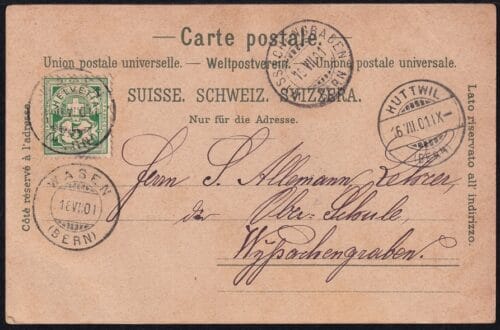 Carte postale.
Union postale universelle. — Weltpostverein. — Unione postale universale.
SUISSE. SCHWEIZ. SVIZZERA.
Nur für die Adresse.
Côté réservé à l'adresse.
Lato riservato all' indirizzo.
HELVETIA
5
WASEN
16.VII.01
(BERN)
HUTTWIL
16.VII.01.IX
(BERN)
BERN
Herrn S. Allemann, Lehrer
der Ober-Schule,
Wyssachengraben.